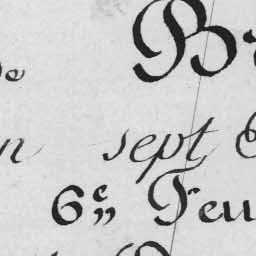 de Br
n sept
6e Feu